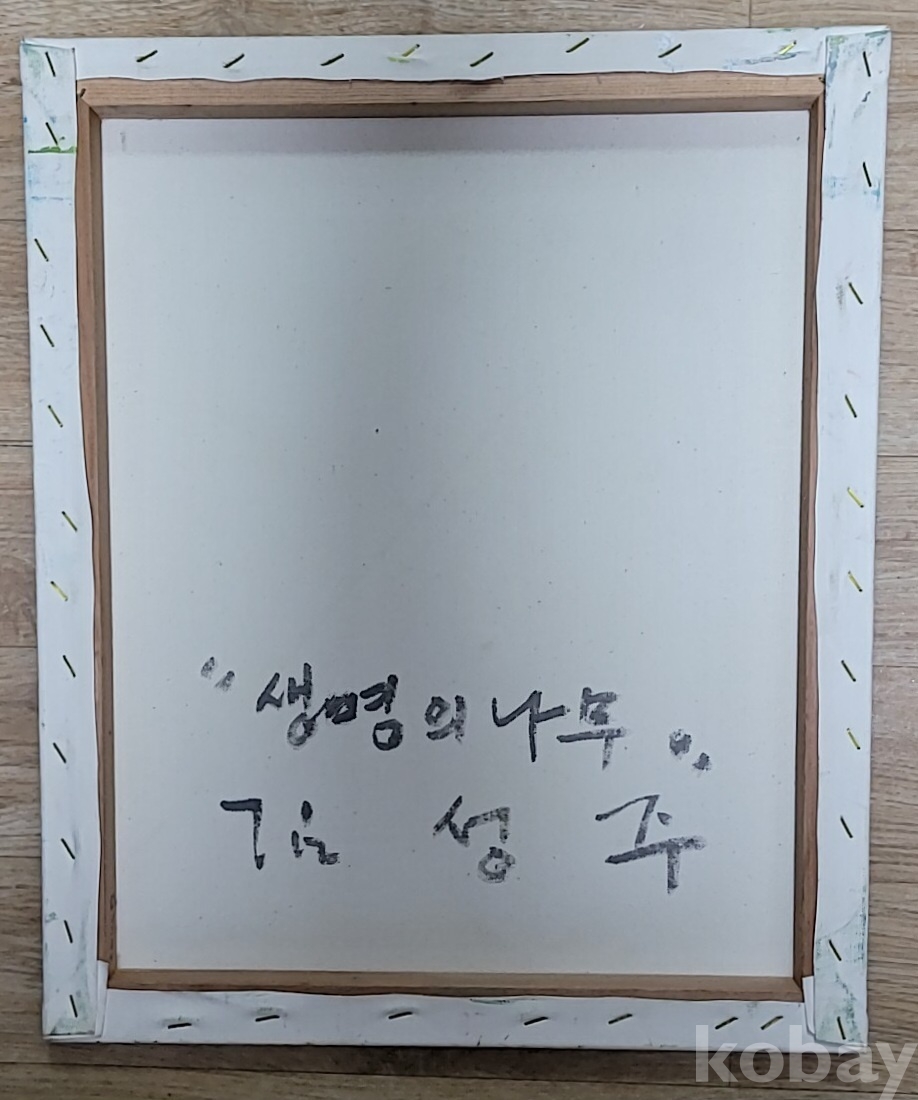 "생명의나무"
김 성 주
kobay